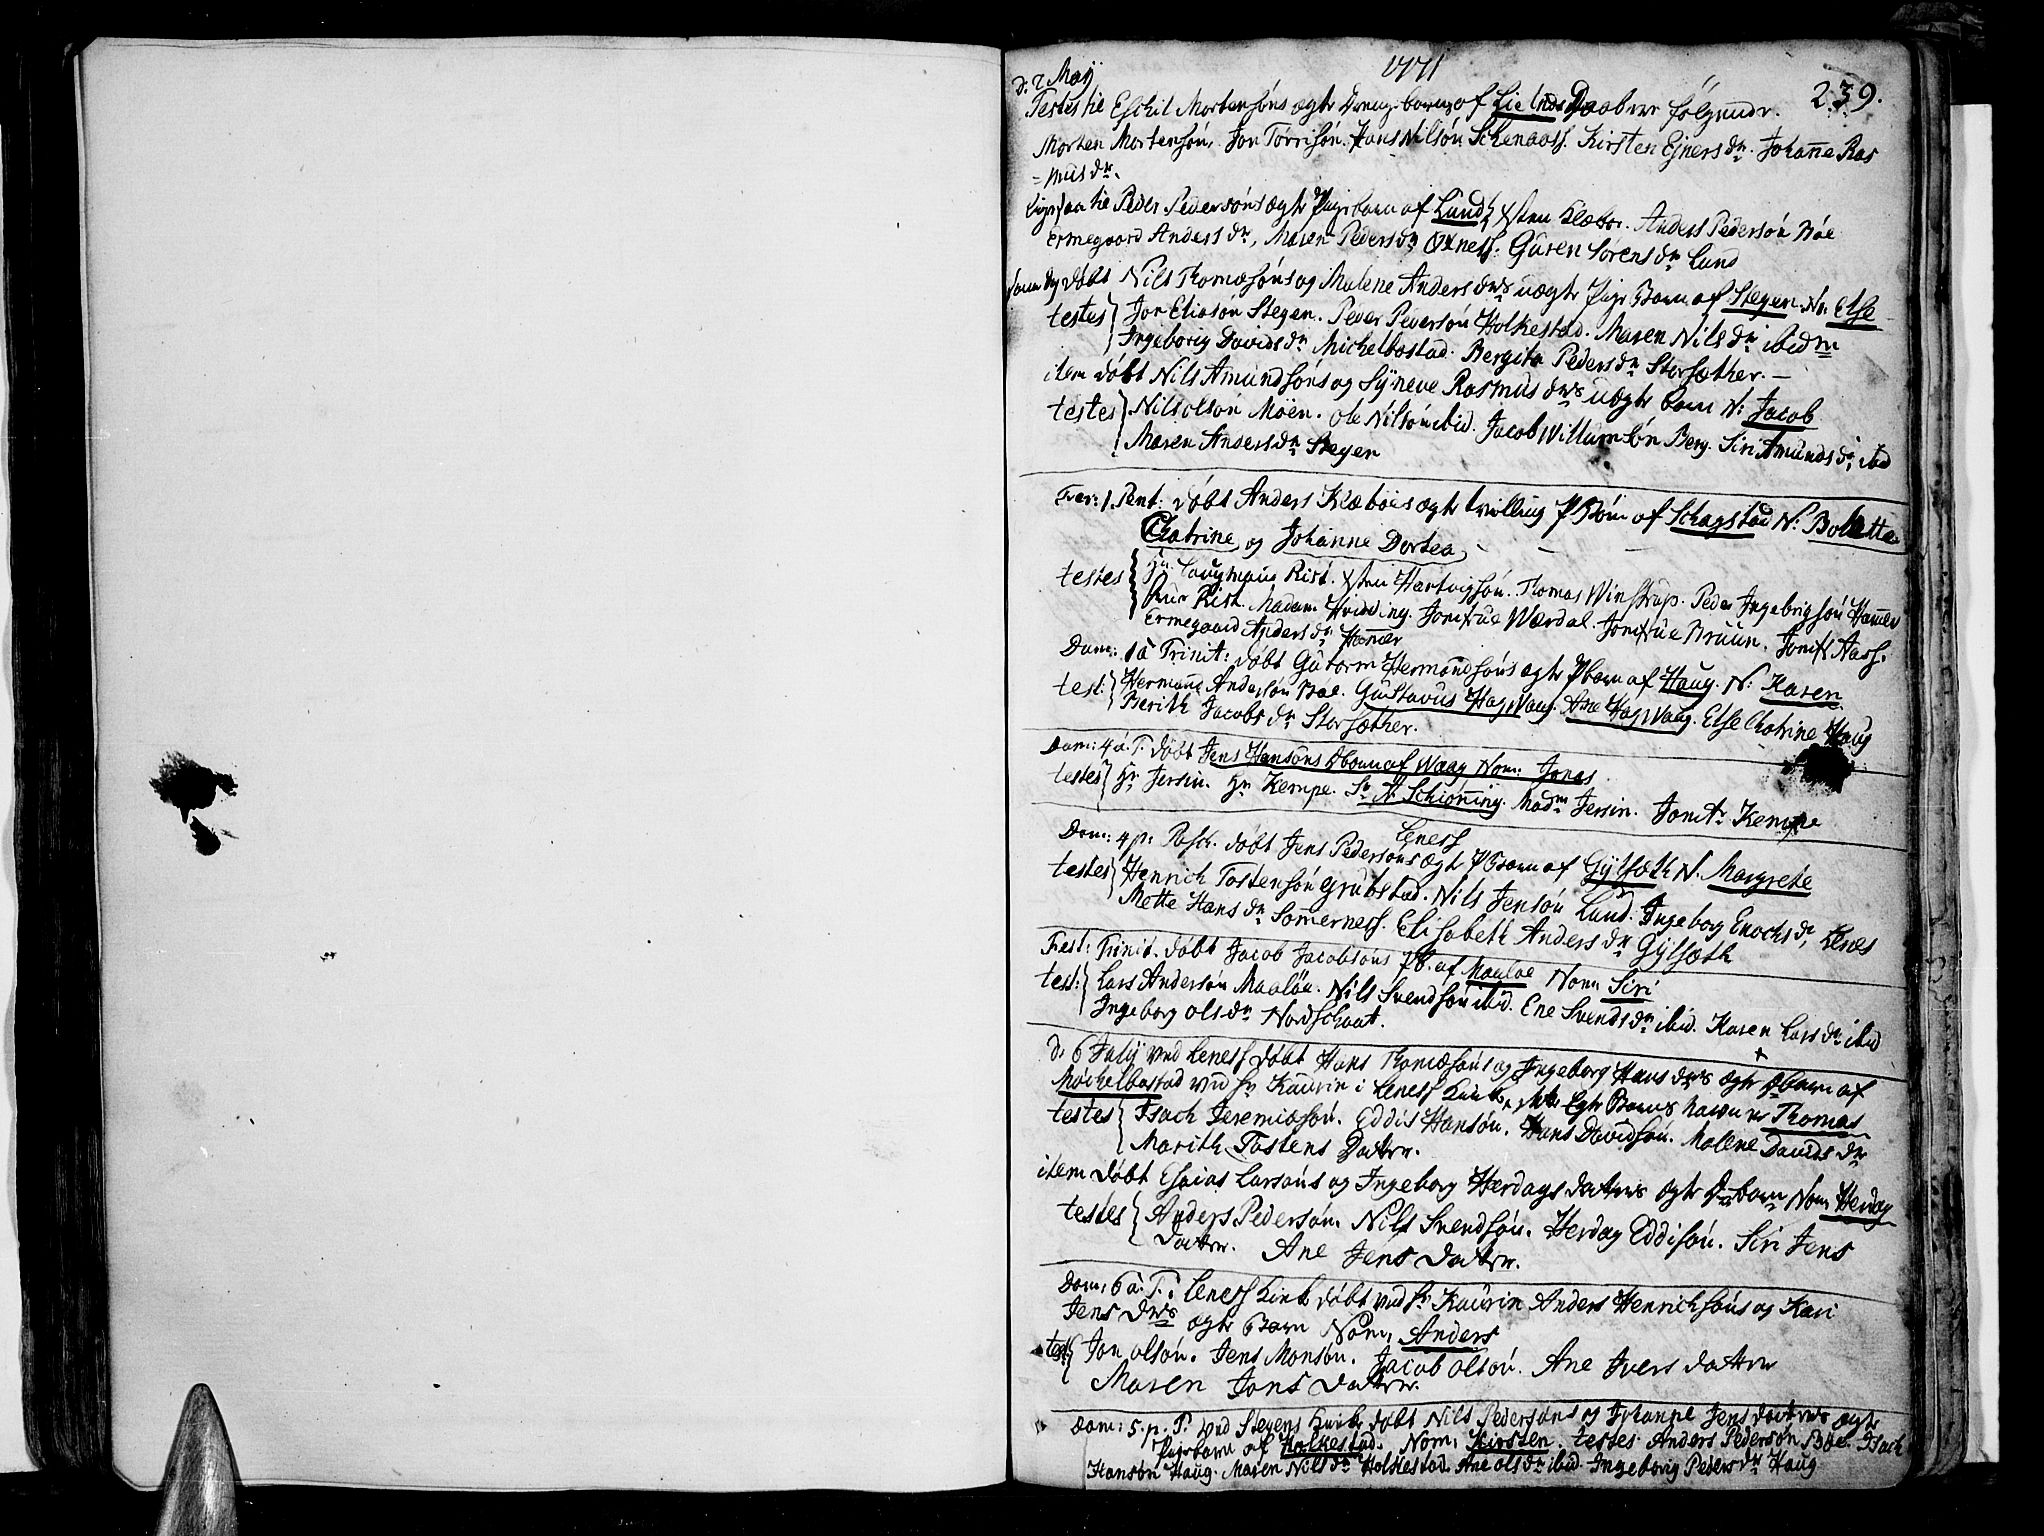 1771
239.
d: 2 Maÿ
Testes til Eschil Mortensøns ægte Drenge-barn af Lie Daab ere følgende.
Morten Mortensøn. Jon Torrisøn. Hans Nilsøn Schenaass. Kirsten Ejners dr. Johanne Ras
= mus dr.
til Peder Pedersøns ægte Pige barn af Lund. Sten Klæboe. Anders Pedersøn Bøe
Ermegaard Anders dr, Maren Peders dr Oxness. Guren Sørens dr Lund
døbt Nils Thomesøns og Malene Anders dtrs uægte Pige Barn af Stegen. N: Else
testes Jon Eliasøn Stegen. Peder Pedersøn Holkestad. Maren Nils dr ibidm
Ingeborg Davids dr Michelbostad. Bergita Peders dr Storsæther.
item døbt Nils Amundsøns og Sÿneve Rasmus dtrs uægte barn N: Jacob
testes Nils olsøn Moen. Ole Nilsøn ibid. Jacob Willumsøn Berg. Siri Amunds dr ibid
Maren Anders dr Stegen
Fer: 1. Pent: døbt Anders Klæboes ægte tvilling P Børn af Schagstad N: Boletta
Chatrine og Johanne Dortea
testes Hr. Rist. Sten Hartvigsøn. Thomas Winstrup. Peder Ingebrigsøn Hamer
Rist. Madam Hvidving. Jomfrue Wærdal. Jomfrue Bruun. Jomf Aass.
Ermegaard Anders dr Hamer
Dom: 1 a Trinit: døbt Gutorm Hermansøns ægte P barn af Haug. N: Karen
test: Hermann Andersøn Bøe. Gustavus Hag Waag. Ane Hag Waag. Else Chatrine Haug
Berith Jacobs dr Storsæther.
Dom: 4 a. T. døbt Jens Hansøns D barn af Waag Nom: Jonas
testes Hr Jersin. Hr Kempe. Sr A: Schiønning. Madm Jersin. Jomfr Kempe
Dom: 4 p. Pasch. døbt Jens Pedersøns Leness ægte P Barn af Gÿlseth N: Margrete
testes Henrich Tostensøn Grubstad. Nils Jensøn Lund. Ingeborg Enochs dr Lenæs
Mette Hans dr Somerness. Elisabeth Anders dr Gÿlseth
Fest: Trinit. døbt Jacob Jacobsøns P B. af Maaløe Nom: Siri
test: Lars Andersøn Maaløe. Nils Svendsøn ibid. Ene Svends dr ibid. Karen Lars dr ibid
Ingeborg ols dr Nordschaat.
d: 6 Julÿ ved Leness døbt Hans Thomæsøns og Ingeborg Hans dtrs ægte D barn af
Michelbostad ved Hr Kaurin i Leness Kirke, Barns navn er Thomas
testes Isach Jeremiæsøn. Eddis Hansøn. Hans Davidsøn. Malene Davids dr
Marith Tostens Datter.
item døbt Esaias Larsøns og Ingeborg Herdags datters ægte D barn Nom: Herdag
testes Anders Pedersøn. Nils Svendsøn. Herdag Eddisøn. Siri Jens
Datter. Ane Jens Datter.
Dom: 6 a. T. i Leness Kirke døbt ved Hr Kaurin Anders Henrichsøns og Kari
Jens dtrs ægte Barn Nom: Anders
test Jon olsøn. Jens Monsøn. Jacob olsøn. Ane Ivers datter
Maren Jons Datter.
Dom: 5. p. T. ved Stegens Kirke døbt Nils Pedersøns og Johanne Jens datters ægte
Pige barn af Holkestad. Nom: Kirsten. testes Anders Pedersøn Bøe Isach
Hansøn Haug. Maren Nils dr Holkestad. Ane ols dr ibid. Ingeborg Peders dr Haug